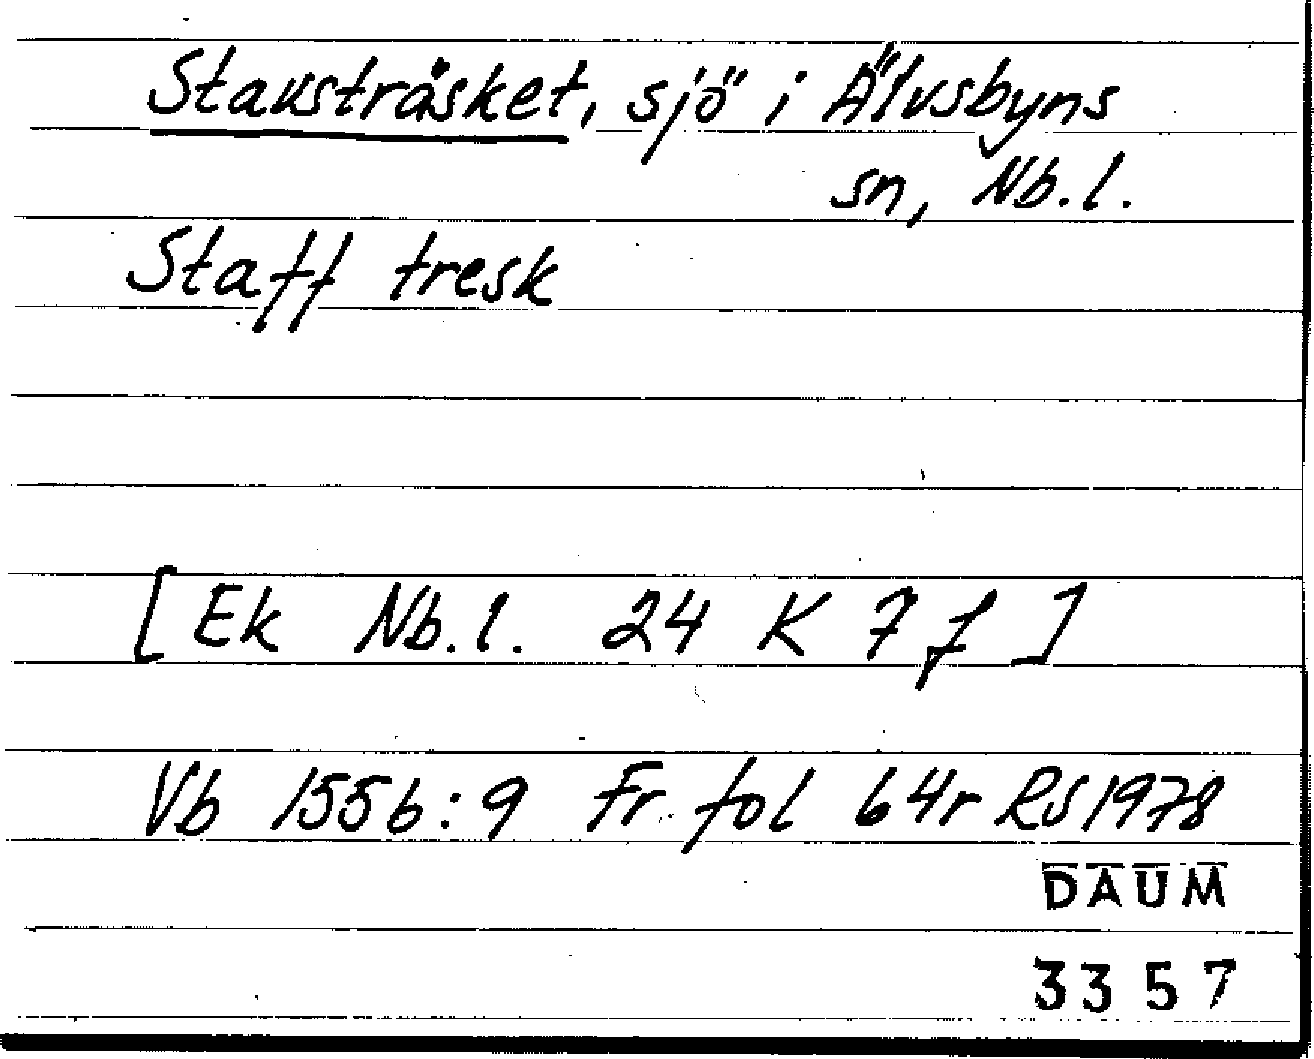 Stavsträsket, sjö i Älvsbyns
sn, Nb.l.
Staff tresk
[Ek Nb.l. 24 K 7 f]
Vb 1556:9 Fr. fol 64r RS 1978
DAUM
3357